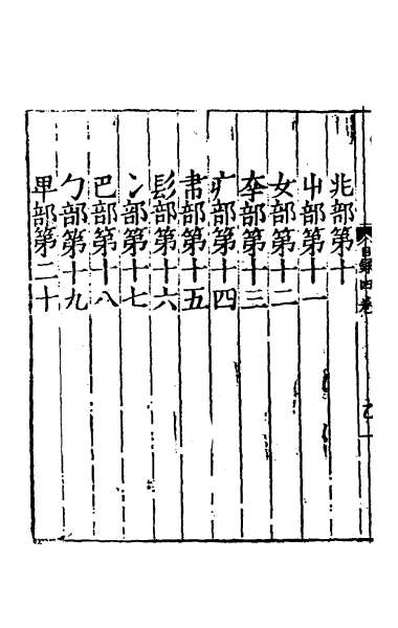 兆部第十
屮部第十一
女部第十二
部第十三
疒部第十四
帇部第十五
髟部第十六
冫部第十七
巴部第十八
勹部第十九
部第二十
目錄四卷